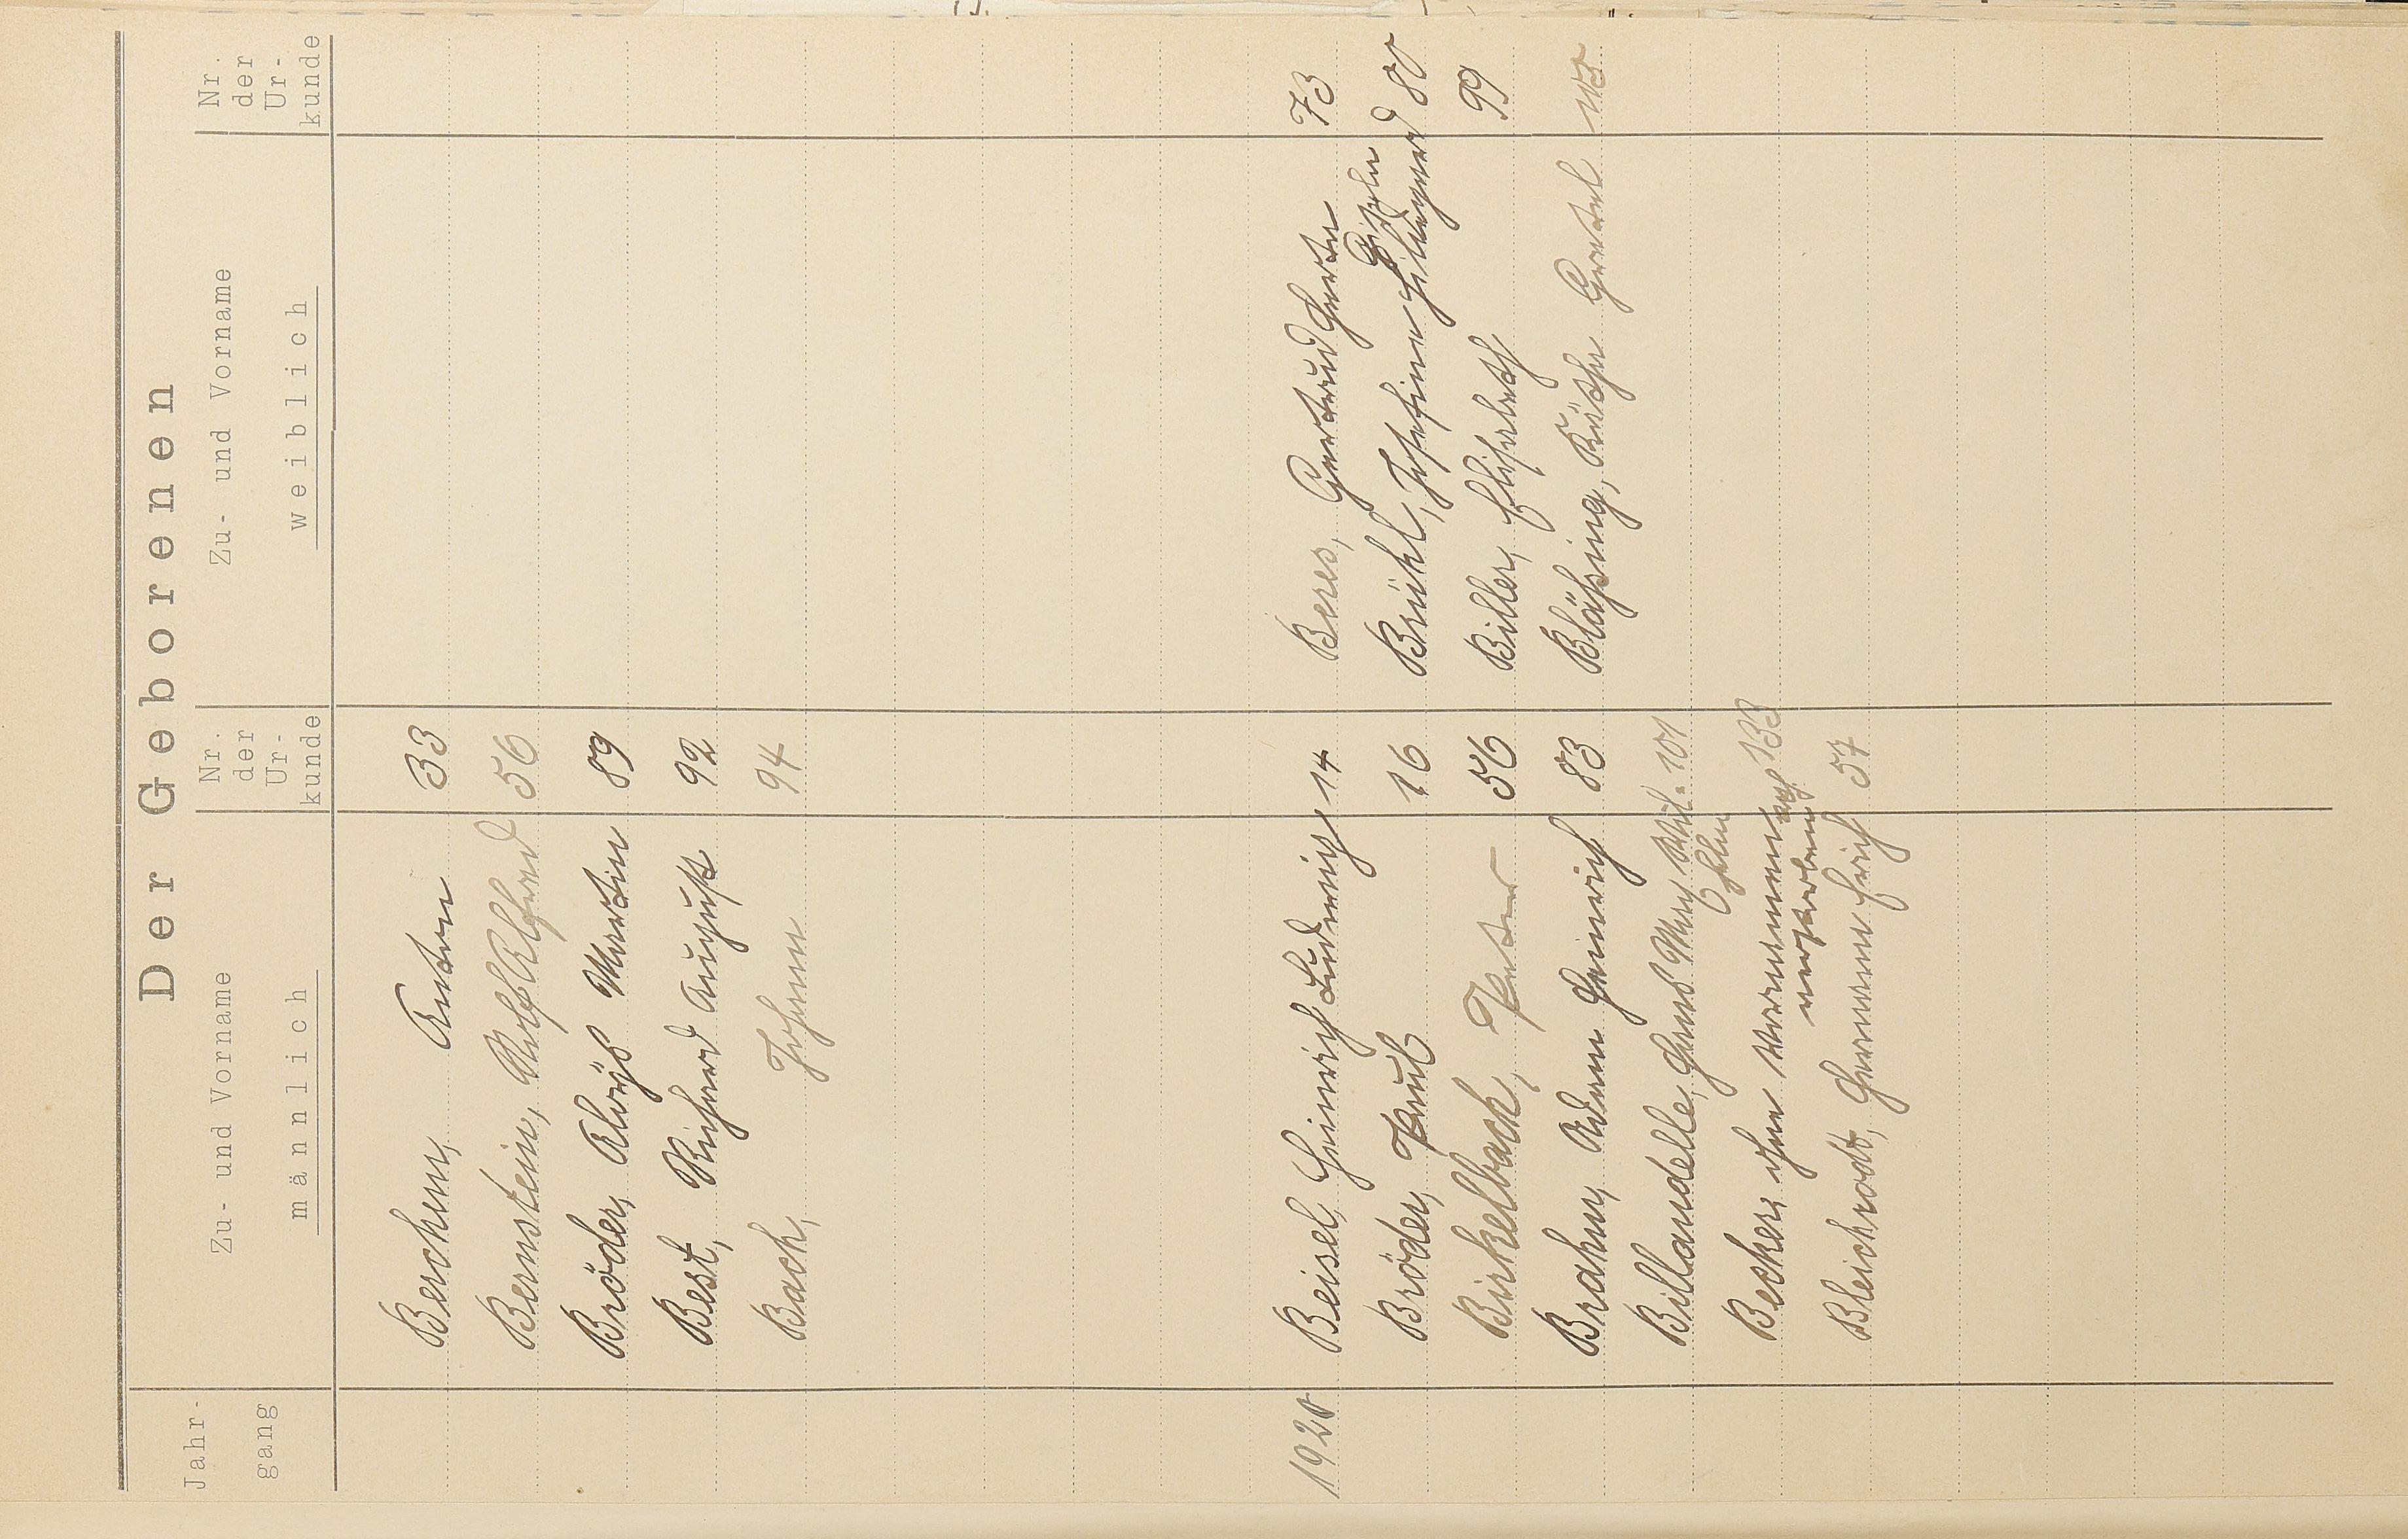 Der Geborenen
Jahr-
gang
Zu- und Vorname
männlich
Nr.
der
Ur-
kunde
Zu- und Vorname
weiblich
Nr.
der
Ur-
kunde
Berchem, Anton 33
Bernstein, Rolf Alfred 56
Bröder, Aloijs Martin 89
Best, Richard August 92
Bach, Johann 94
1920 Beisel, Heinrich Ludwig 14 Beres, Gertrud Herta 73
Gisela
Bröder, Paul 16 Brühl, Josefine Hildegard 80
Birkelbach, Peter 56 Biller, Elisabeth 99
Brahm, Adam Heinrich 83 Bläsing, Käthe Gretel 113
Billandelle, Hans Max Wil- 101
Becker, ohne Vornamen 133
verstorben
Bleichrodt, Hermann Erich 57